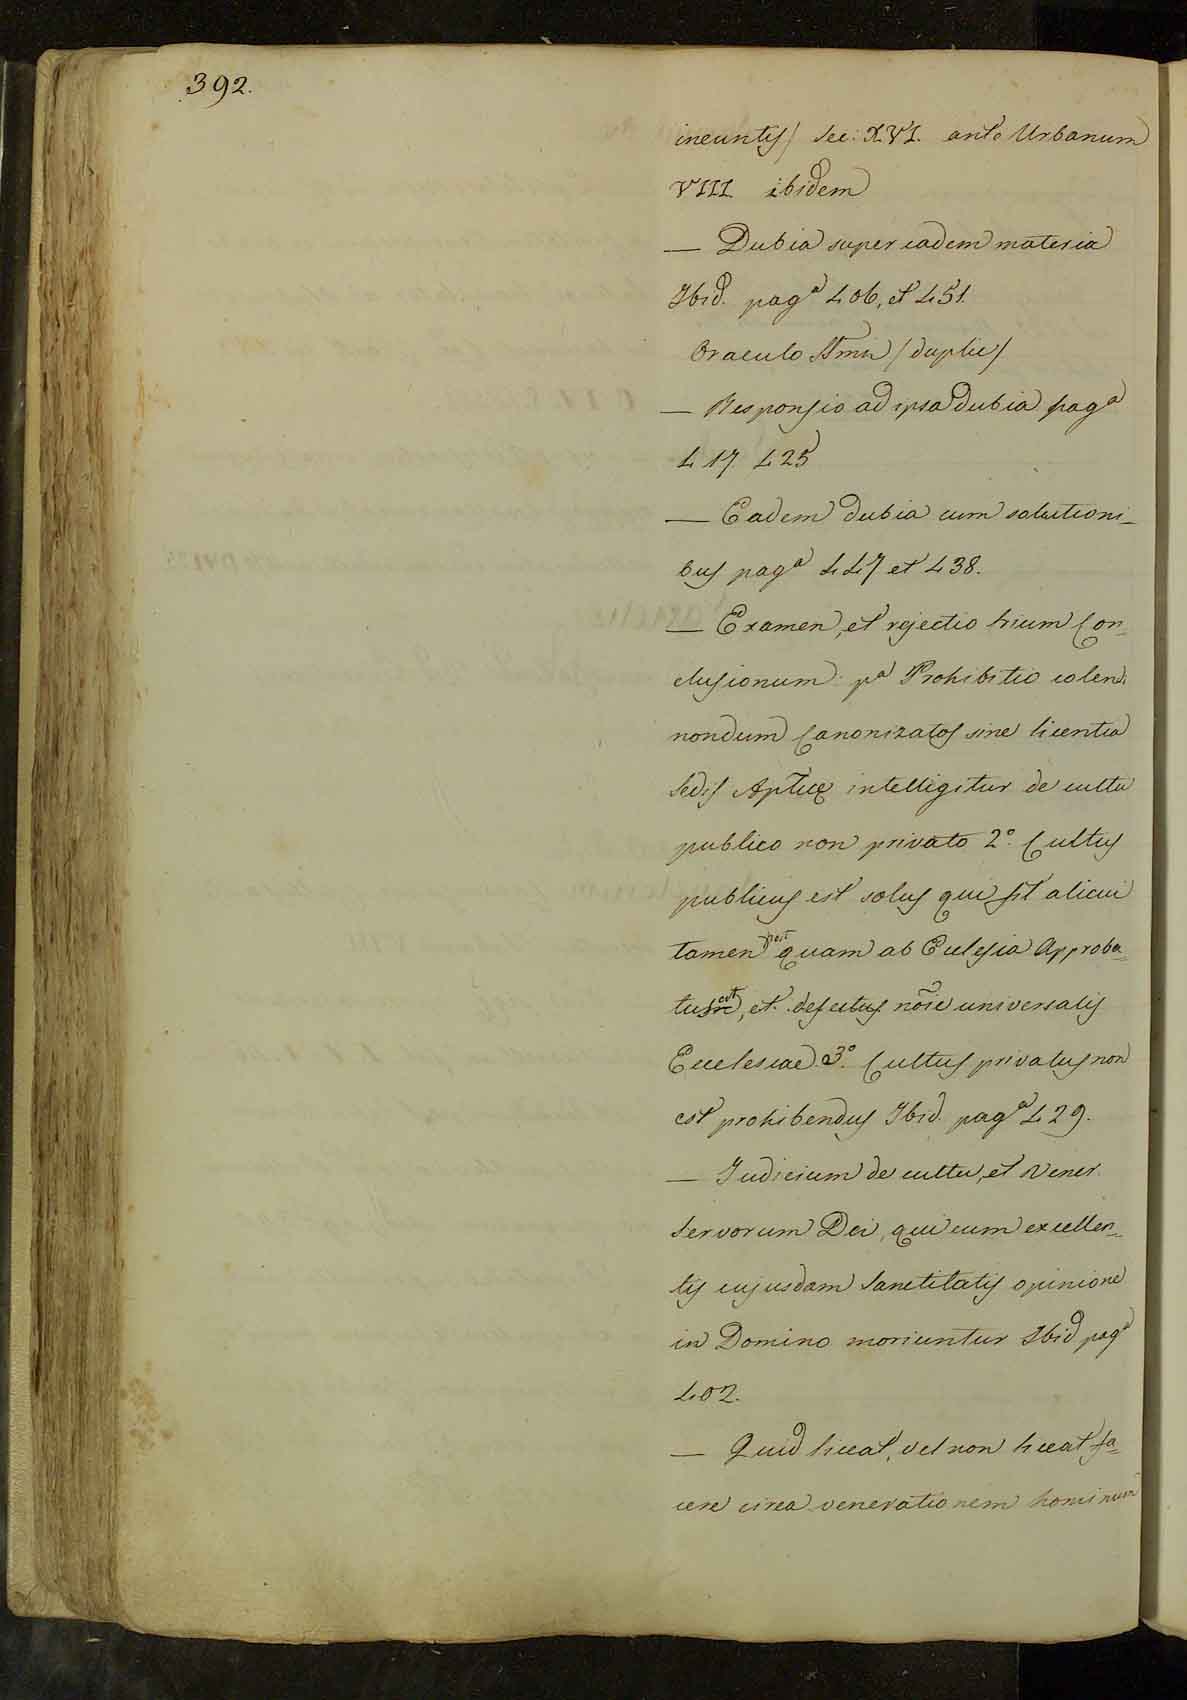 392.
ineuntis / sec: XVI. ante Urbanum
VIII ibidem
— Dubia super eadem materia
Ibid. pagª 406, et 451.
Oraculo SSmi / duplic /
— Responsio ad ipsa dubia pagª
417 425
— Eadem dubia cum solutioni-
bus pagª 447 et 438.
— Examen, et rejectio trium Con-
clusionum: pª Prohibitio colendi
nondum Canonizatos sine licentia
Sedis Aplicæ intelligitur de cultu
publico non privato 2º. Cultus
publicus est solus qui fit alicui
tamen post quam ab Eclesia Approba=
tus est, et defertus nõie universalis
Ecclesiae. 3º. Cultus privatus non
est prohibendus Ibid. pagª 429.
— Judicium de cultu, et vener.
Servorum Dei, qui cum excellen=
tis cujusdam Sanctitatis opinione
in Domino moriuntur Ibid pagª
402.
— Quid liceat, vel non liceat fa=
cere circa venerationem hominum